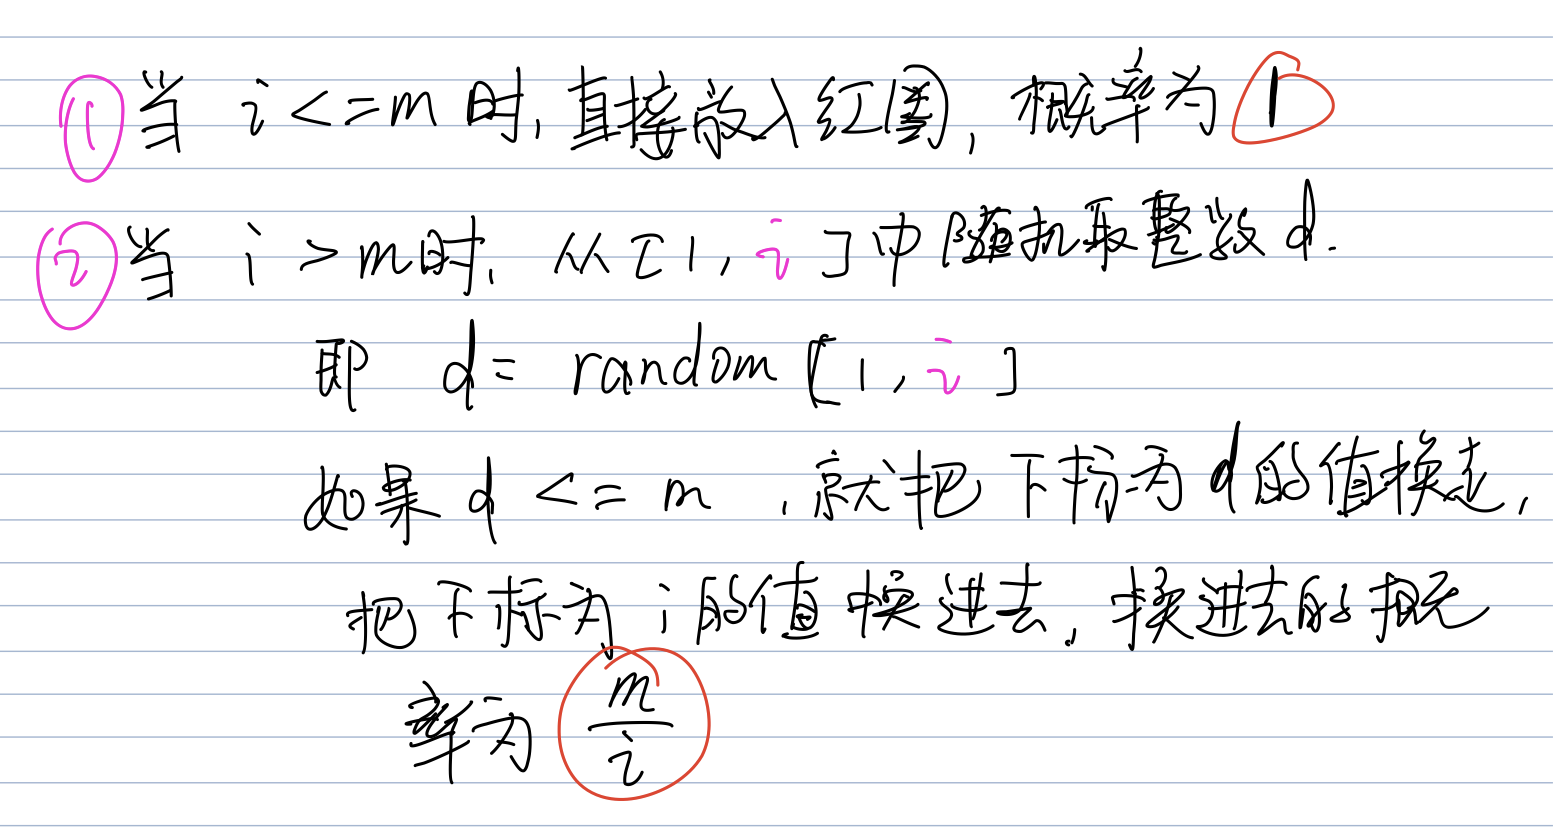 ① 当 i <= m 时, 直接放入红圈, 概率为 1
② 当 i > m 时, 从[1, i]中随机取整数 d.
即 d = random [1, i]
如果 d <= m, 就把下标为 d 的值换走,
把下标为 i 的值换进去, 换进去的概
率为 m/i